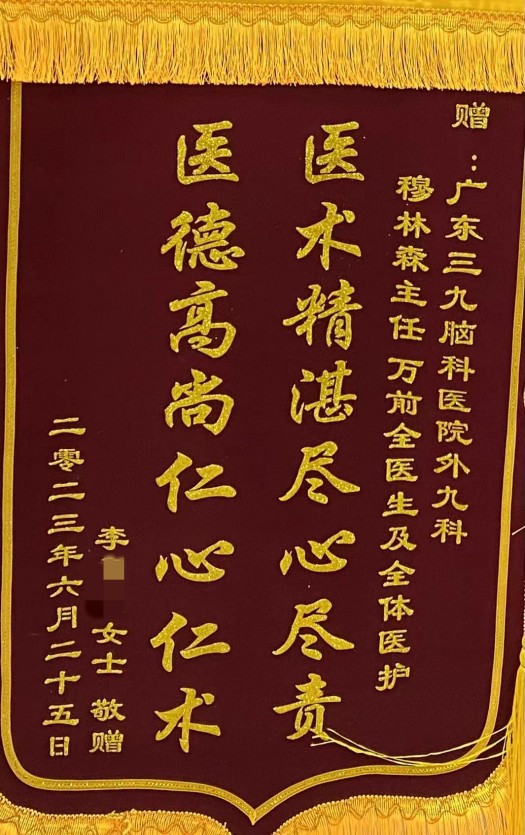 赠：广东三九脑科医院外九科
穆林森主任 万前全医生及全体医护
医术精湛尽心尽责
医德高尚仁心仁术
李 女士 敬赠
二零二三年六月二十五日